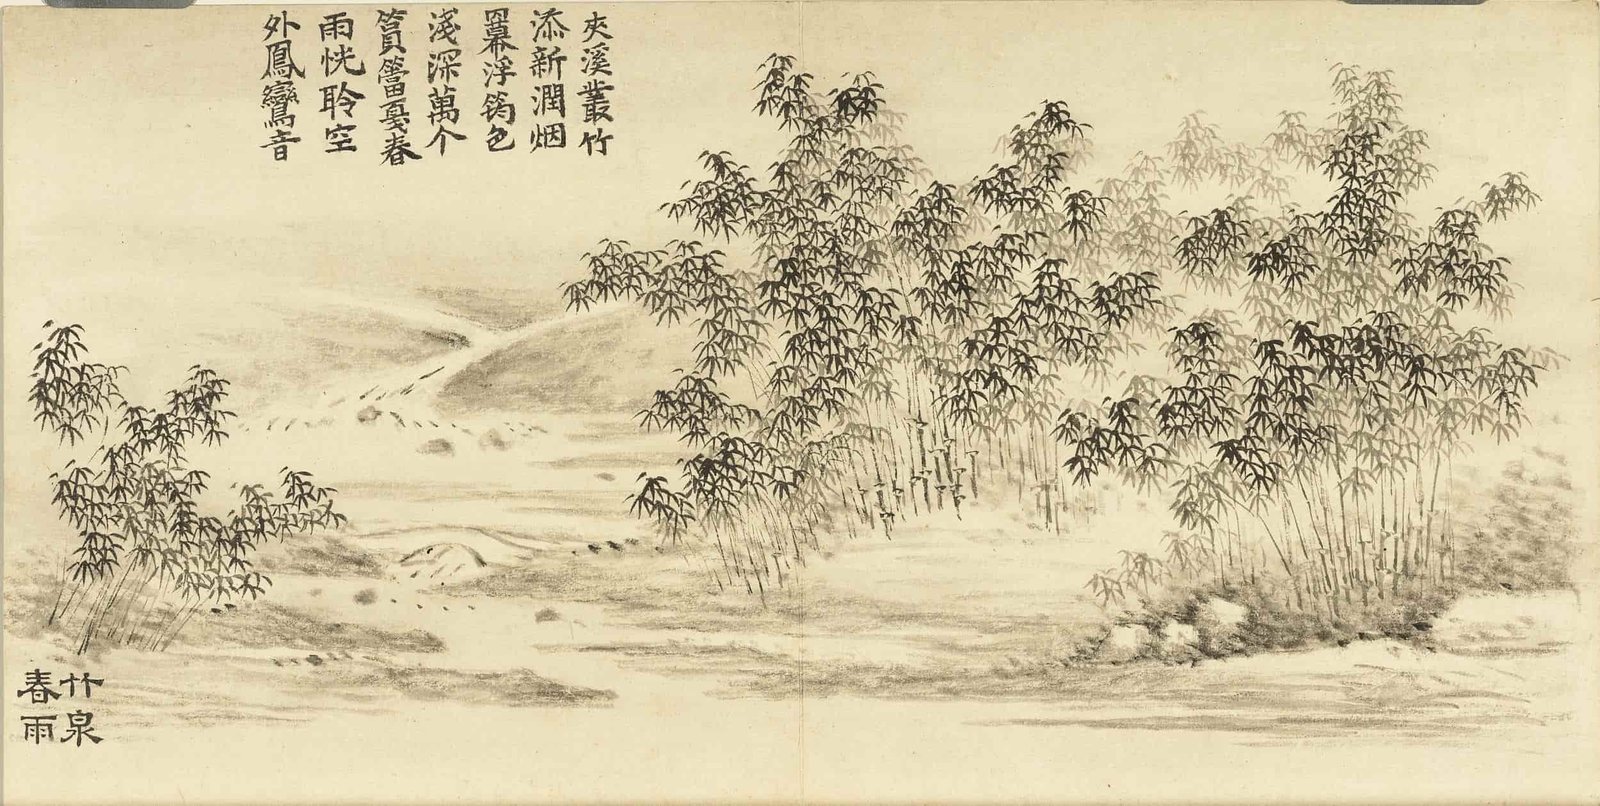 夾溪叢竹
添新潤烟
冪浮筠色
淺深萬个
篔簹戞春
雨恍聆空
外鳳鸞音
竹泉
春雨